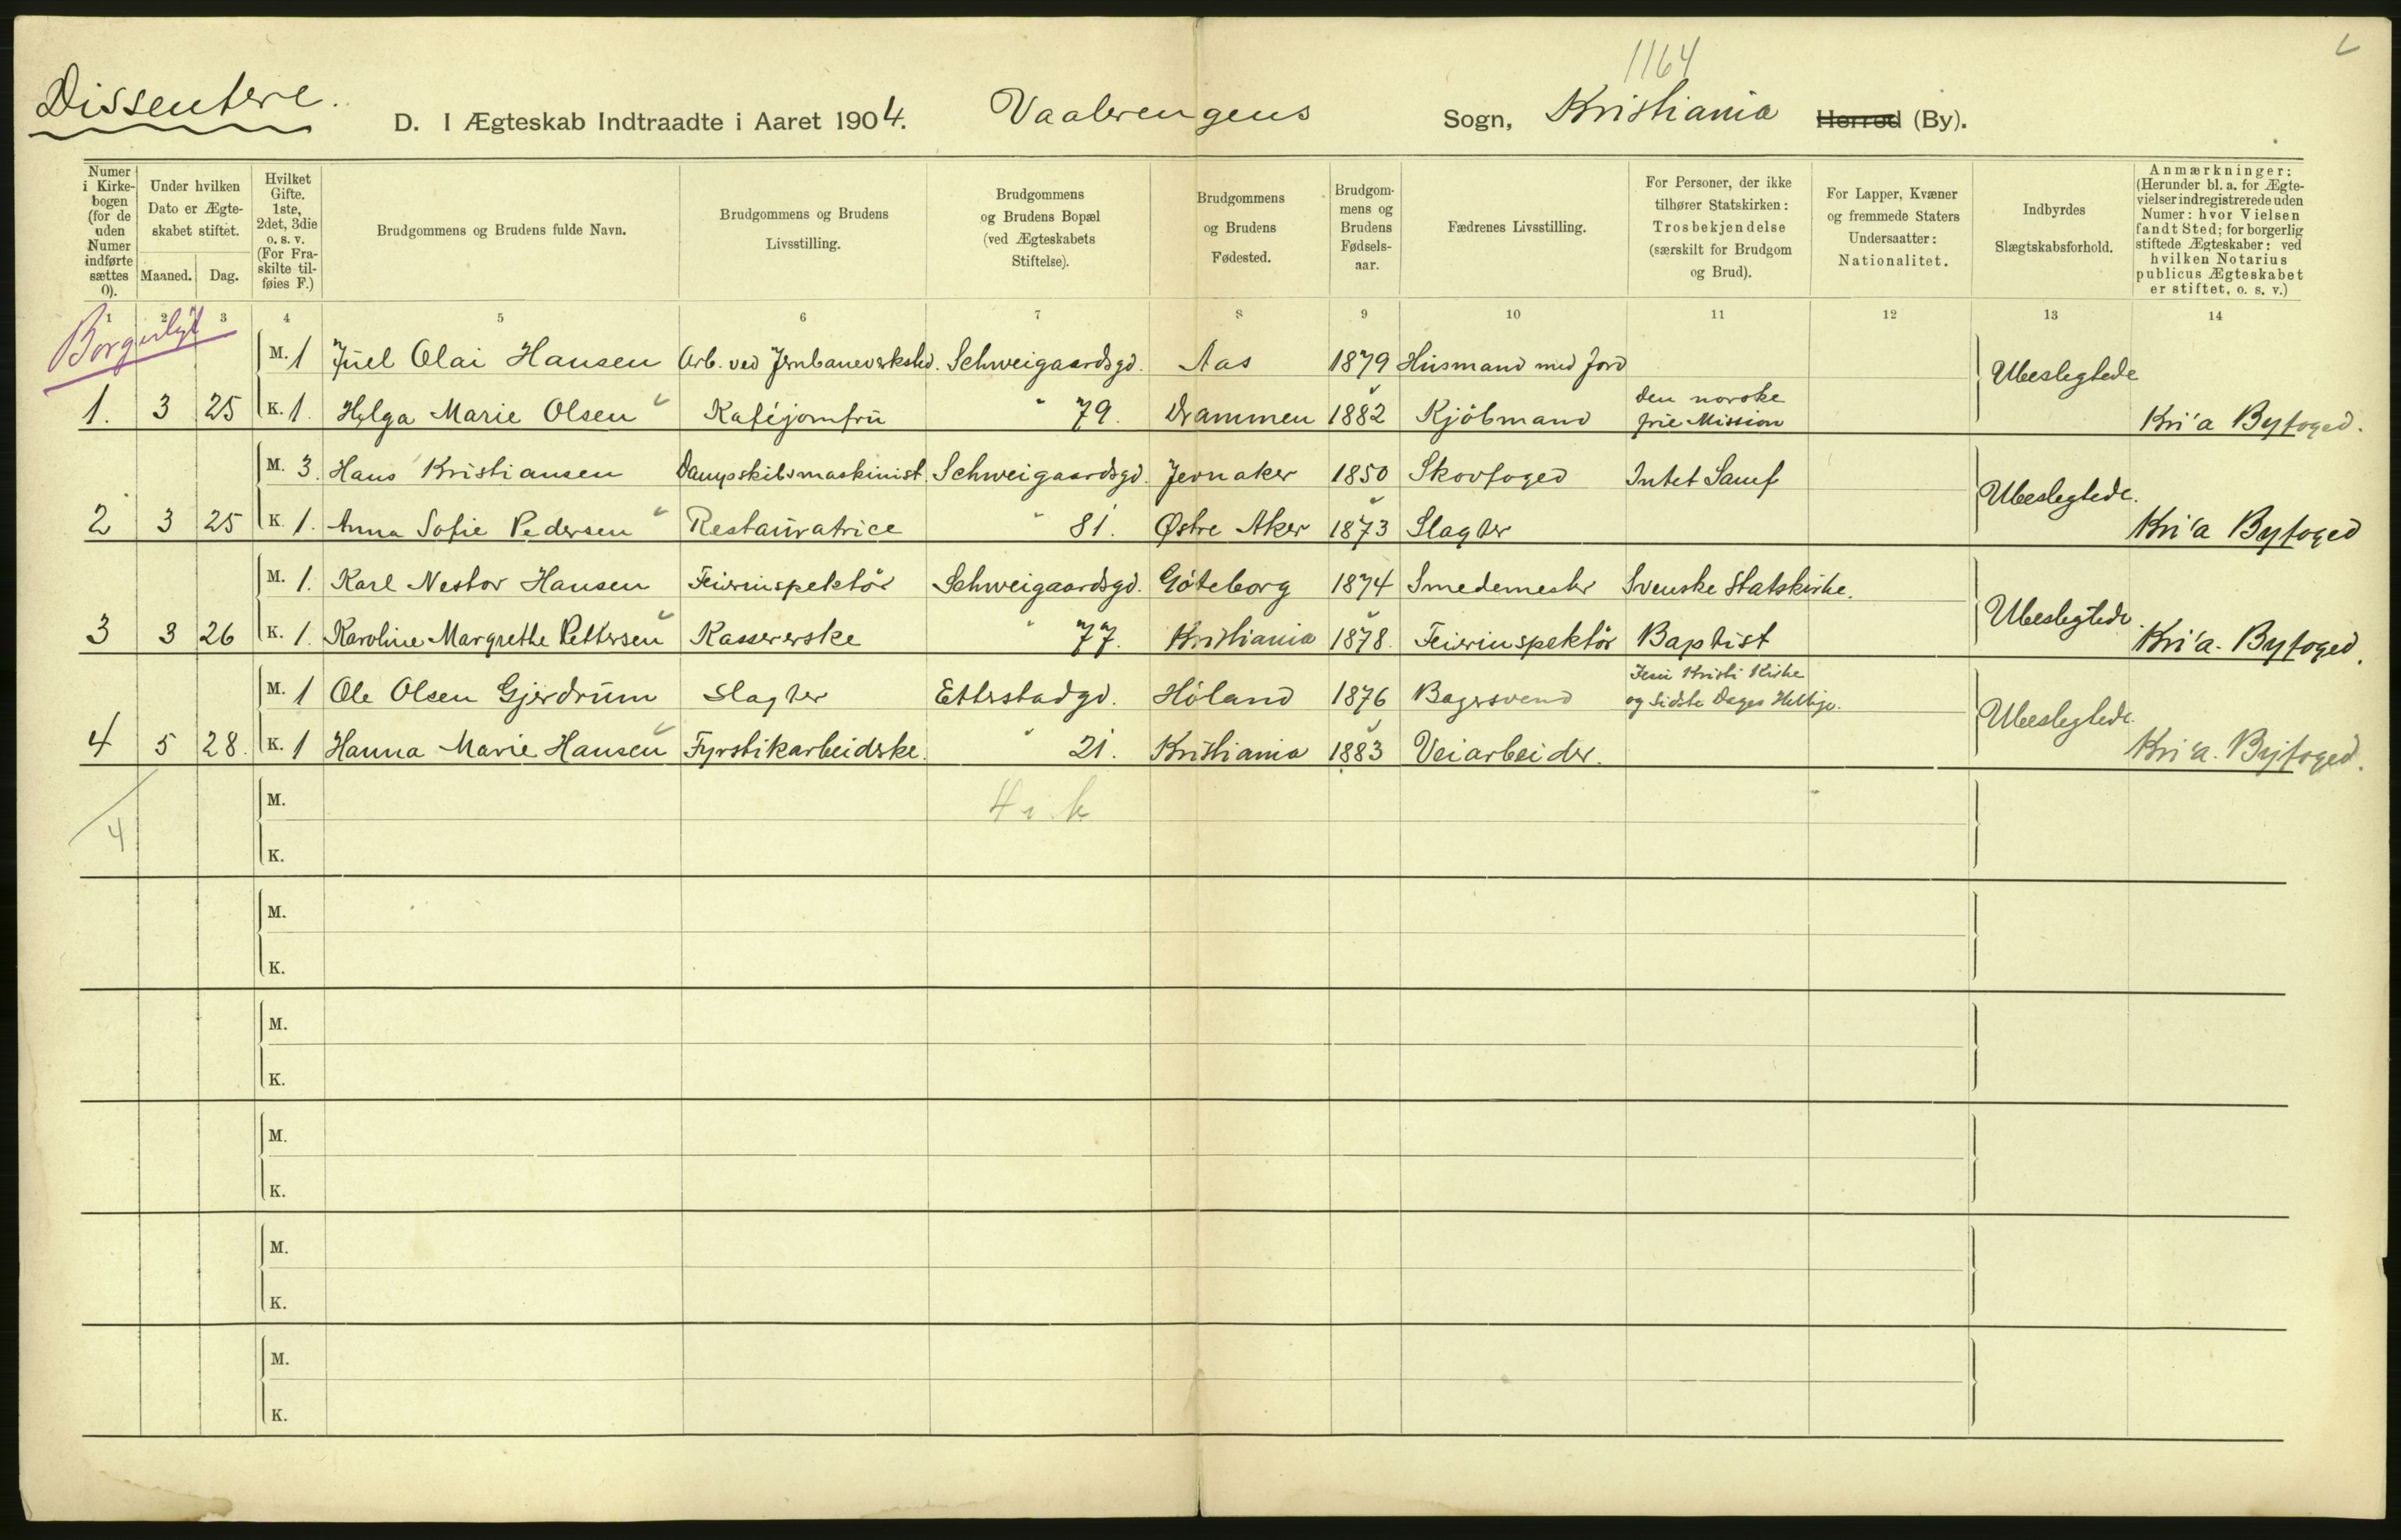 1164
Dissentere.
D. I Ægteskab Indtraadte i Aaret 1904. Vaalerengens Sogn, Kristiania Herred (By).
Numer i Kirkebogen (for de uden Numer indførte sættes 0).
Under hvilken Dato er Ægteskabet stiftet.
Maaned. Dag.
Hvilket Gifte. 1ste, 2det, 3die o. s. v. (For Fraskilte tilføies F.)
Brudgommens og Brudens fulde Navn.
Brudgommens og Brudens Livsstilling.
Brudgommens og Brudens Bopæl (ved Ægteskabets Stiftelse).
Brudgommens og Brudens Fødested.
Brudgommens og Brudens Fødselsaar.
Fædrenes Livsstilling.
For Personer, der ikke tilhører Statskirken: Trosbekjendelse (særskilt for Brudgom og Brud).
For Lapper, Kvæner og fremmede Staters Undersaatter: Nationalitet.
Indbyrdes Slægtskabsforhold.
Anmærkninger: (Herunder bl. a. for Ægtevielser indregistrerede uden Numer: hvor Vielsen fandt Sted; for borgerlig stiftede Ægteskaber: ved hvilken Notarius publicus Ægteskabet er stiftet, o. s. v.)
1 2 3 4 5 6 7 8 9 10 11 12 13 14
Borgerligt
M. 1 Juel Olai Hansen Arb. ved Jernbaneverksted. Schweigaardsgd. Aas 1879 Husmand med Jord Ubeslegtede
1. 3 25 K. 1. Helga Marie Olsen Kaféjomfru " 79. Drammen 1882 Kjöbmand den norske frie Mission Kri'a Byfoged.
M. 3. Hans Kristiansen Dampskibsmaskinist. Schweigaardsgd. Jevnaker 1850 Skovfoged Intet Samf Ubeslegtede.
2 3 25 K. 1. Anna Sofie Pedersen Restauratrice " 81. Østre Aker 1873 Slagter Kri'a Byfoged
M. 1. Karl Nestor Hansen Feierinspektör Schweigaardsgd. Göteborg 1874 Smedemester Svenske Statskirke. Ubeslegtede.
3 3 26 K. 1. Karoline Margrethe Pettersen Kassererske " 77. Kristiania 1878. Feierinspektör Baptist Kri'a. Byfoged.
M. 1 Ole Olsen Gjerdrum Slagter Etterstadgd. Höland 1876 Bagersvend Jesu Kristi Kirke og Sidste Dages Hellige. Ubeslegtede.
4 5 28. K. 1 Hanna Marie Hansen Fyrstikarbeiderske. " 21. Kristiania 1883 Veiarbeider. Kri'a. Byfoged.
M.
4
K.
M.
K.
M.
K.
M.
K.
M.
K.
M.
K.